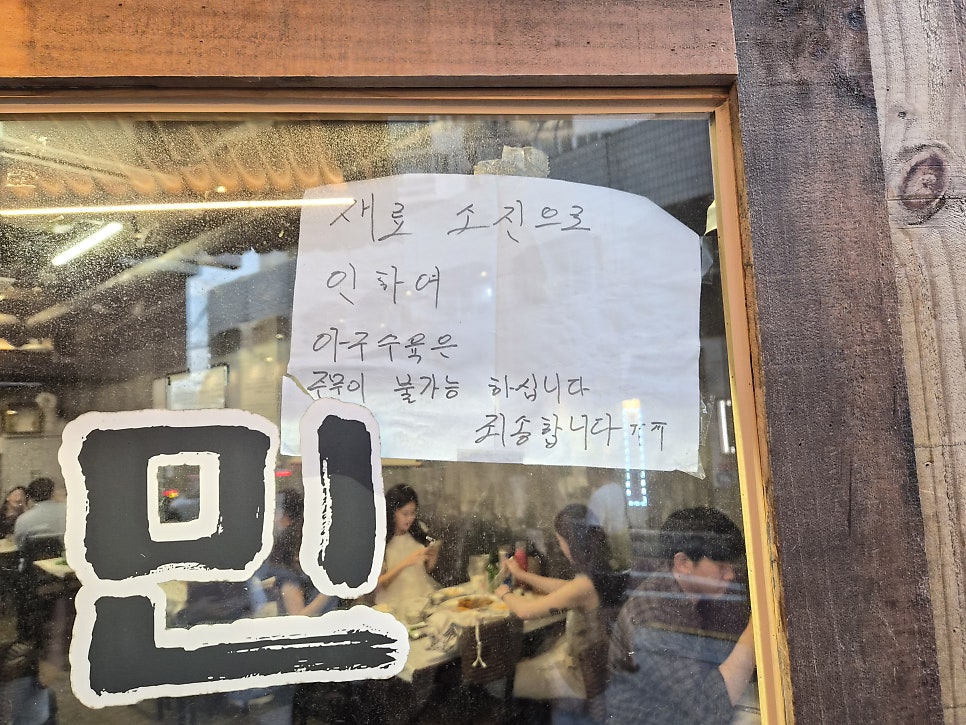 재료 소진으로
인하여
아구수육은
주문이 불가능 하십니다
죄송합니다 ㅠㅠ
민